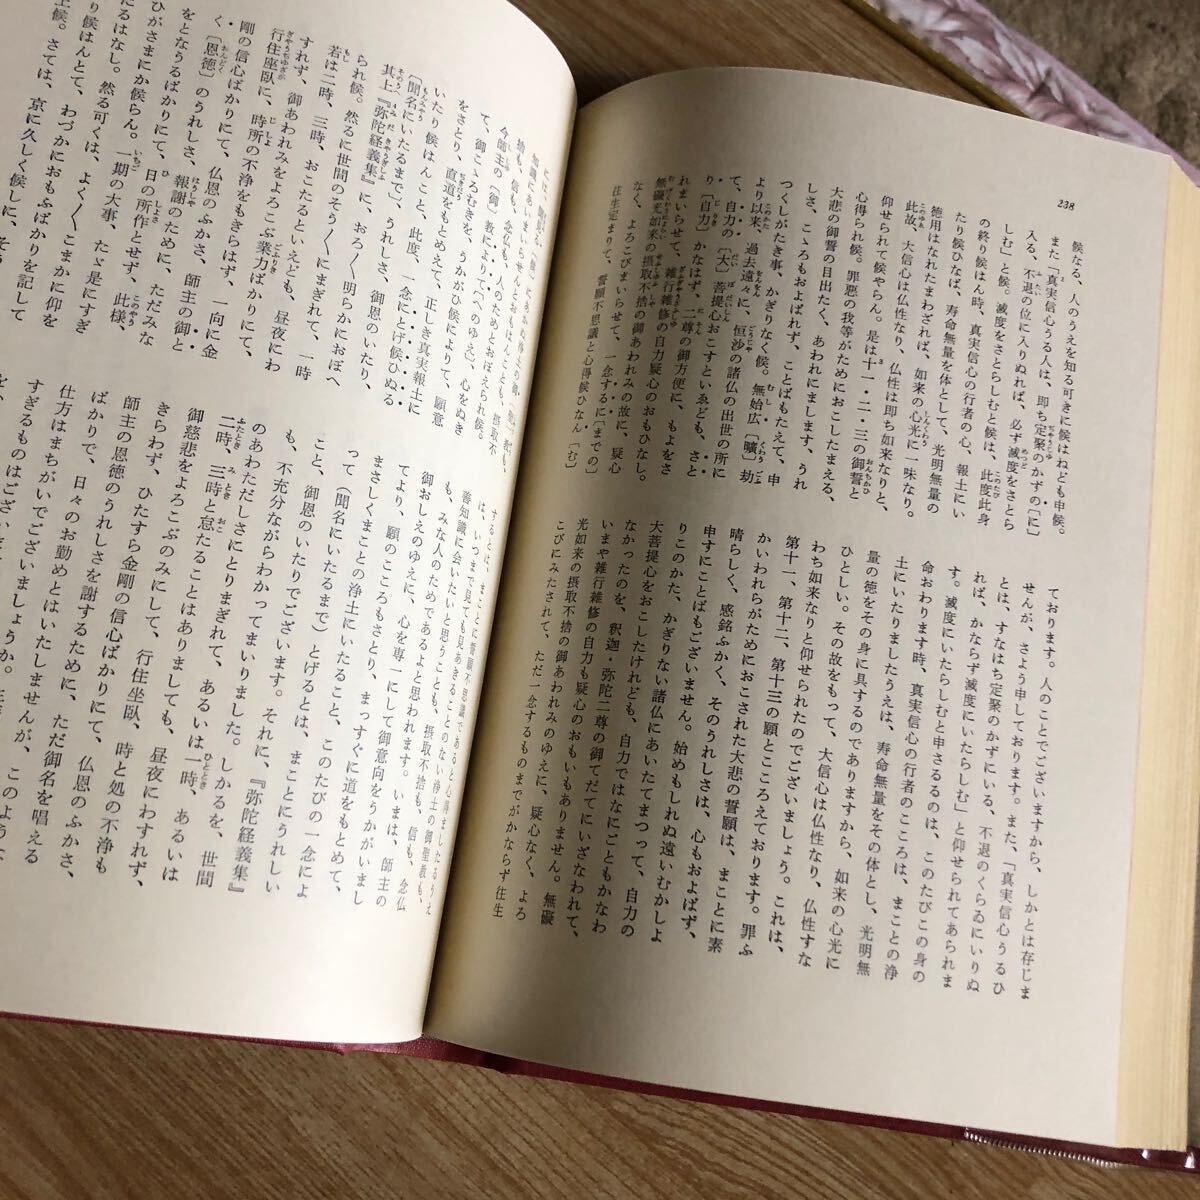 238
候なる、人のうえを知る可きに候はねども申候。
また「真実信心うる人は、即ち定聚のかずの〔に〕
入る、不退の位に入りぬれば、必ず滅度をさとら
しむ」と候。滅度をさとらしむと候は、此度此身
の終り候はん時、真実信心の行者の心、報土にい
たり候ひなば、寿命無量を体として、光明無量の
徳用はなれたまわざれば、如来の心光に一味なり。
此故、大信心は仏性なり、仏性は即ち如来なりと、
仰せられて候やらん。是は十一・二・三の御誓と
心得られ候。罪悪の我等がためにおこしたまえる、
大悲の御誓の目出たく、あわれにまします、うれ
しさ、こゝろもおよばれず、ことばもたえて、申
つくしがたき事、かぎりなく候。無始広〔曠〕劫
より以来、過去遠々に、恒沙の諸仏の出世の所に
て、自力の〔大〕菩提心おこすといゑども、さと
り〔自力〕かなはず、二尊の御方便に、もよをさ
れまいらせて、雑行雑修の自力疑心のおもひなし。
無礙光如来の摂取不捨の御あわれみの故に、疑心
なく、よろこびまいらせて、一念するに〔までの〕
往生定まりて、誓願不思議と心得候ひなん〔む〕
ております。人のことでございますから、しかとは存じま
せんが、さよう申しております。また、「真実信心うるひ
とは、すなはち定聚のかずにいる、不退のくらゐにいりぬ
れば、かならず滅度にいたらしむ」と仰せられてあられま
す。滅度にいたらしむと申さるるのは、このたびこの身の
命おわります時、真実信心の行者のこころは、まことの浄
土にいたりましたうえは、寿命無量をその体とし、光明無
量の徳をその身に具するのでありますから、如来の心光に
ひとしい。その故をもって、大信心は仏性なり、仏性すな
わち如来なりと仰せられたのでございましょう。これは、
第十一、第十二、第十三の願とこころえております。罪ふ
かいわれらがためにおこされた大悲の誓願は、まことに素
晴らしく、感銘ふかく、そのうれしさは、心もおよばず、
申すにことばもございません。始めもしれぬ遠いむかしよ
りこのかた、かぎりない諸仏にあいたてまつって、自力の
大菩提心をおこしたけれども、自力ではなにごともかなわ
なかったのを、釈迦・弥陀二尊の御てだてにいざなわれて、
いまや雑行雑修の自力も疑心のおもいもありません。無礙
光如来の摂取不捨の御あわれみのゆえに、疑心なく、よろ
こびにみたされて、ただ一念するものまでがかならず往生
知識にあいまいらせんとおもはんことも、摂取不
捨も、信も、念仏も、人のためとおぼえられ候。
今師主の〔御〕教によりて〔へのゆゑ〕、心をぬき
て、御こよろむきを、うかがひ候によりて、願意
をさとり、直道をもとめえて、正しき真実報土に
いたり候はんこと、此度、一念にとげ候ひぬる
〔聞名にいたるまで〕、うれしさ、御恩のいたり、
其上『弥陀経義集』に、おろ〱明らかにおぼへ
られ候。然るに世間のそう〱にまぎれて、一時
若は二時、三時、おこたるといえども、昼夜にわ
すれず、御あわれみをよろこぶ業力ばかりにて、
行住座臥に、時所の不浄をもきらはず、一向に金
剛の信心ばかりにて、仏恩のふかさ、師主の御と
く〔恩徳〕のうれしさ、報謝のために、ただみな
をとなうるばかりにて、日の所作とせず、此様、
ひがさまにか候らん。一期の大事、たゞ是にすぎ
たるはなし。然る可くは、よく〱こまかに仰を
り候はんとて、わづかにおもふばかりを記して
上候。さては、京に久しく候しに、
するとは、まことに誓願不思議であると心得ましたるうえ
は、いつまで見ても見あきることのない浄土の御聖教も、
善知識に会いたいと思うことも、摂取不捨も、信も、念仏
も、みな人のためであるよと思われます。いまは、師主の
御おしえのゆえに、心を専一にして御意向をうかがいまし
てより、願のこころもさとり、まっすぐに道をもとめて、
まさしくまことの浄土にいたること、このたびの一念によ
って（聞名にいたるまで）とげるとは、まことにうれしい
こと、御恩のいたりでございます。それに、『弥陀経義集』
も、不充分ながらわかってまいりました。しかるを、世間
のあわただしさにとりまぎれて、あるいは一時、あるいは
二時、三時と怠たることはありましても、昼夜にわすれず、
御慈悲をよろこぶのみにして、行住坐臥、時と処の不浄も
きらわず、ひたすら金剛の信心ばかりにて、仏恩のふかさ、
師主の恩徳のうれしさを謝するために、ただ御名を唱える
ばかりで、日々のお勤めとはいたしませんが、このような
仕方はまちがいでございましょうか。
すぎるものはござい